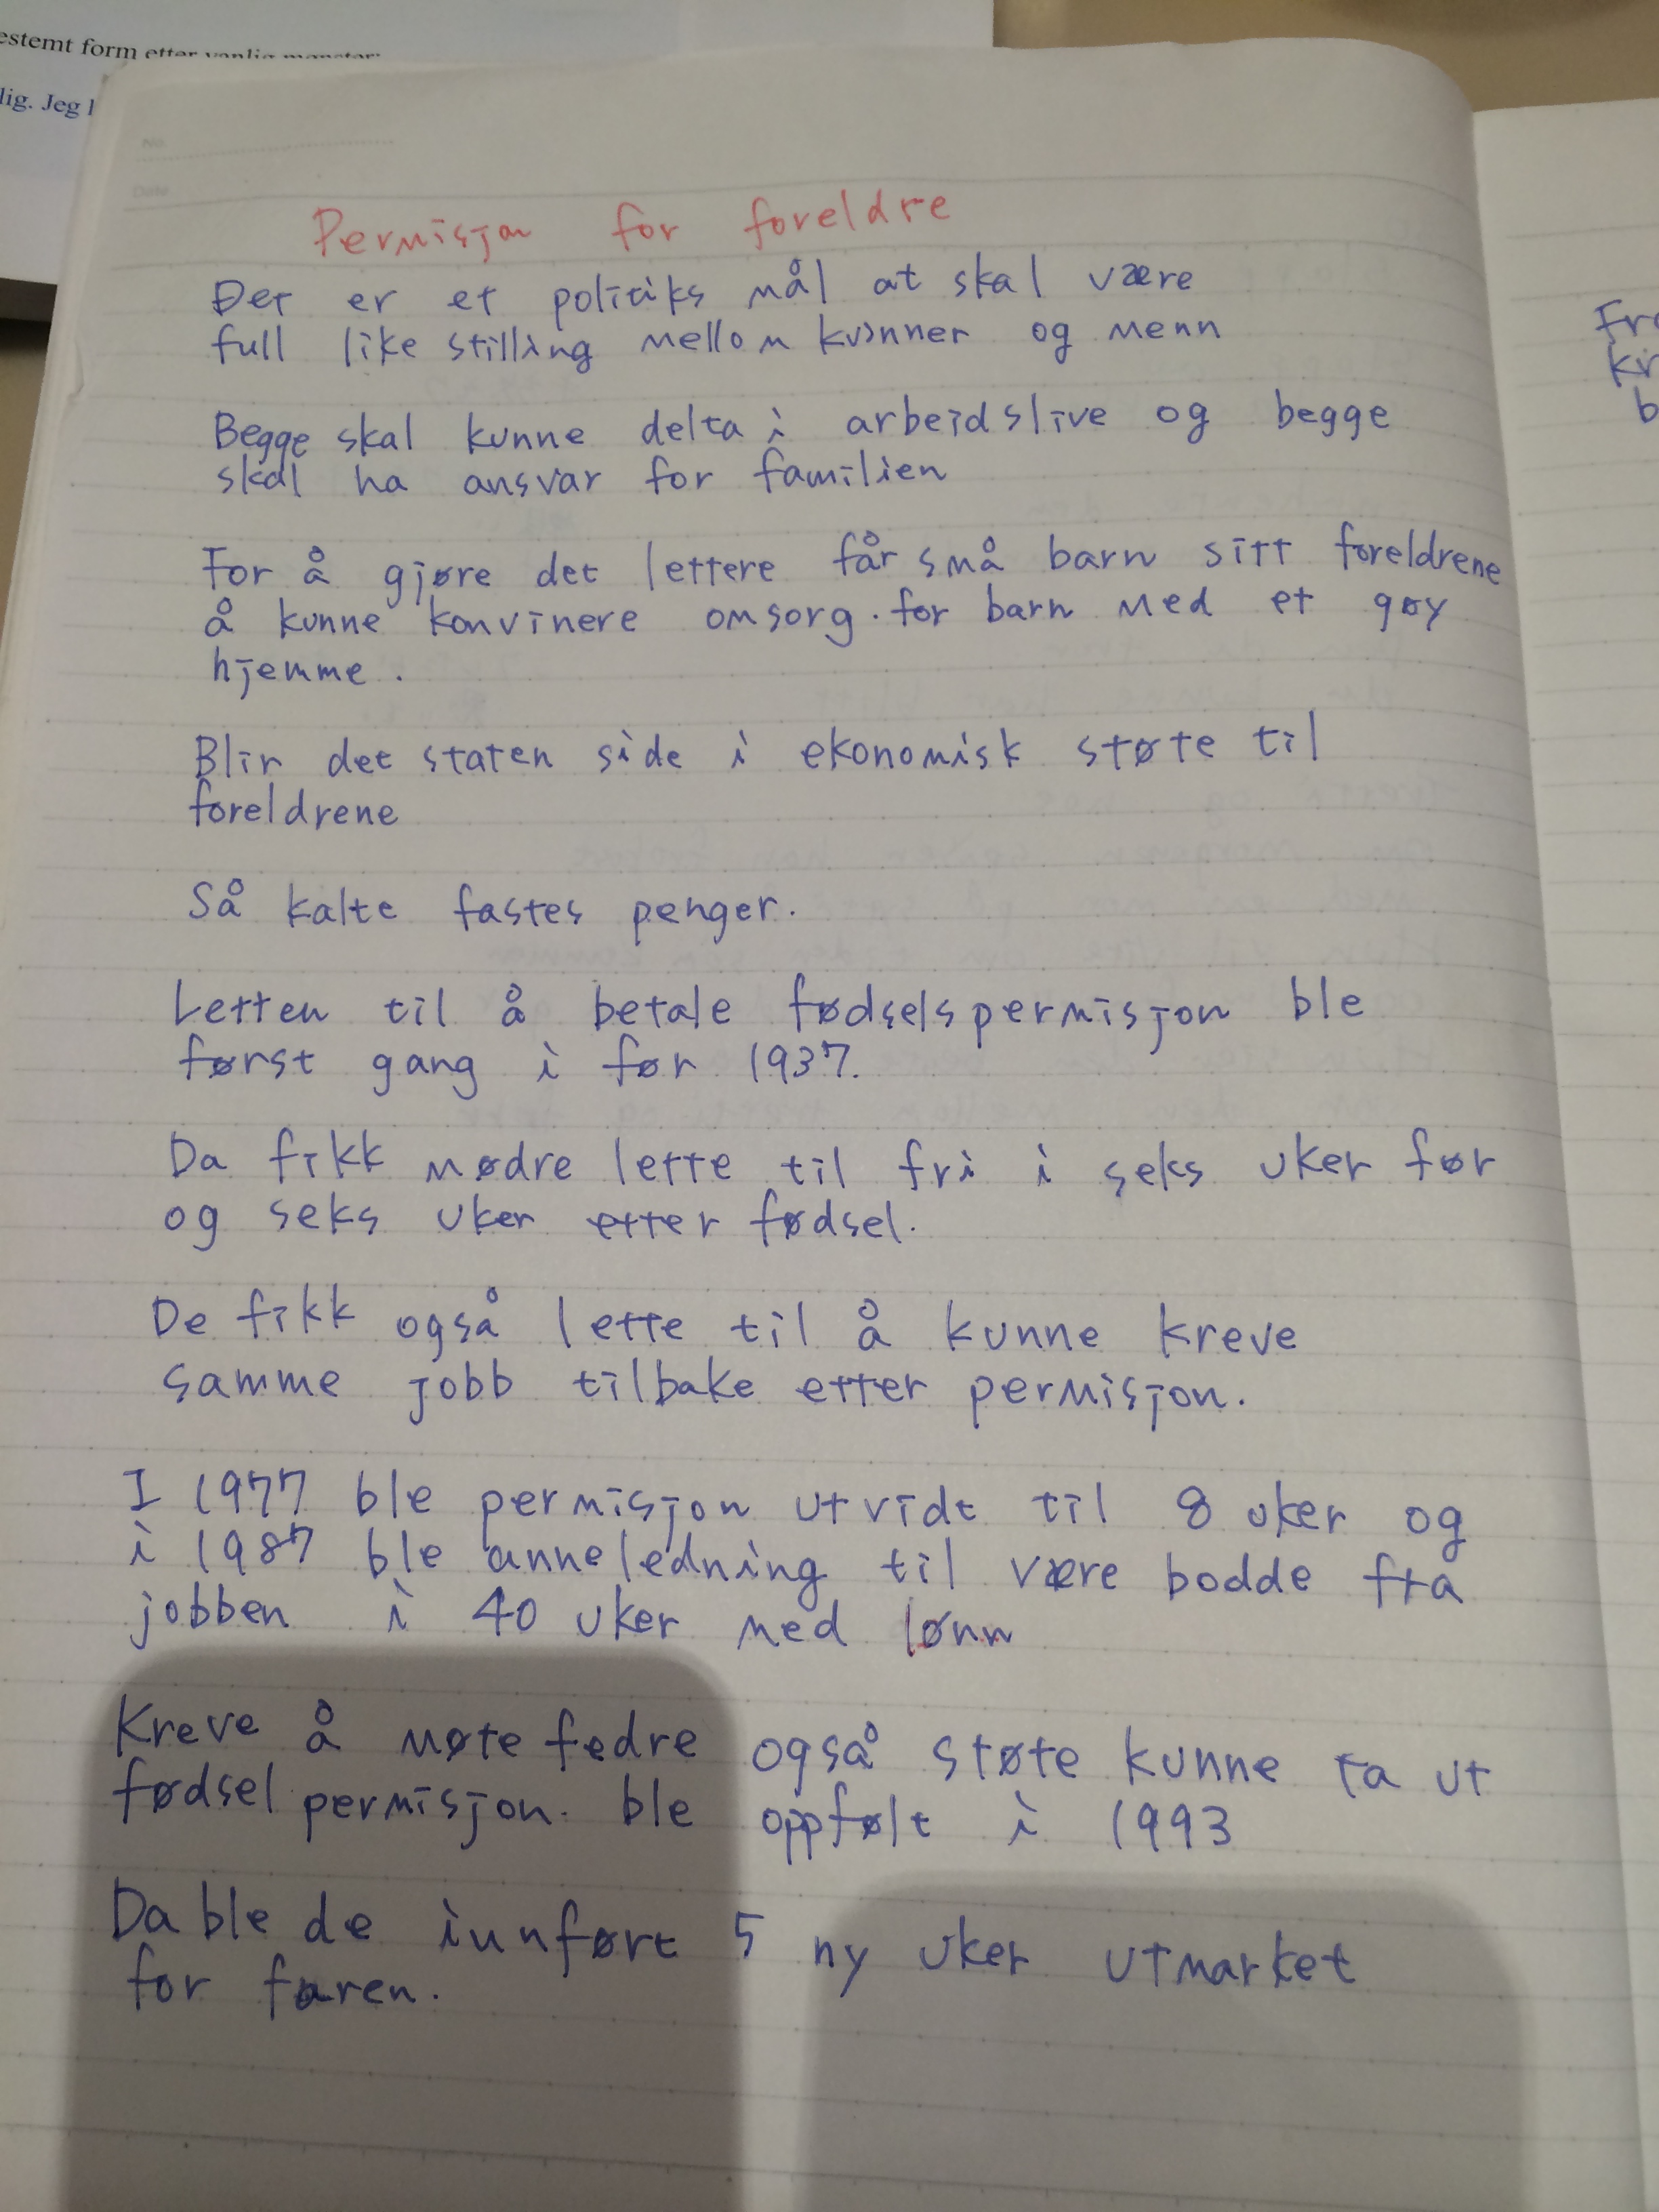 estemt form etter vanlig mønster:
lig. Jeg l
No.
Date
Permisjon for foreldre
Det er et politiks mål at skal være
full like stilling mellom kvinner og menn
Begge skal kunne delta i arbeidslive og begge
skal ha ansvar for familien
For å gjøre det lettere får små barn sitt foreldrene
å kunne konvinere omsorg. for barn med et gøy
hjemme.
Blir det staten side i ekonomisk støte til
foreldrene
Så kalte fastes penger.
Letten til å betale fødselspermisjon ble
først gang i før 1937.
Da fikk mødre lette til fri i seks uker før
og seks uker etter fødsel.
De fikk også lette til å kunne kreve
samme jobb tilbake etter permisjon.
I 1977 ble permisjon utvidt til 8 uker og
i 1987 ble anneledning til være bodde fra
jobben i 40 uker med lønn
Kreve å møte fedre også støte kunne ta ut
fødsel permisjon. ble oppfølt i 1993
Da ble de innført 5 ny uker utmarket
for faren.
Fr
kr
b